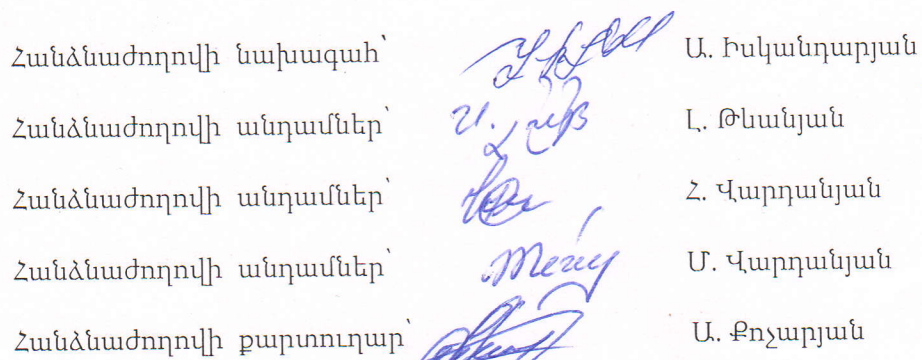 Հանձնաժողովի նախագահ՝ Ա. Իսկանդարյան
Հանձնաժողովի անդամներ՝ Լ. Թևանյան
Հանձնաժողովի անդամներ՝ Հ. Վարդանյան
Հանձնաժողովի անդամներ՝ Մ. Վարդանյան
Հանձնաժողովի քարտուղար՝ Ա. Քոչարյան